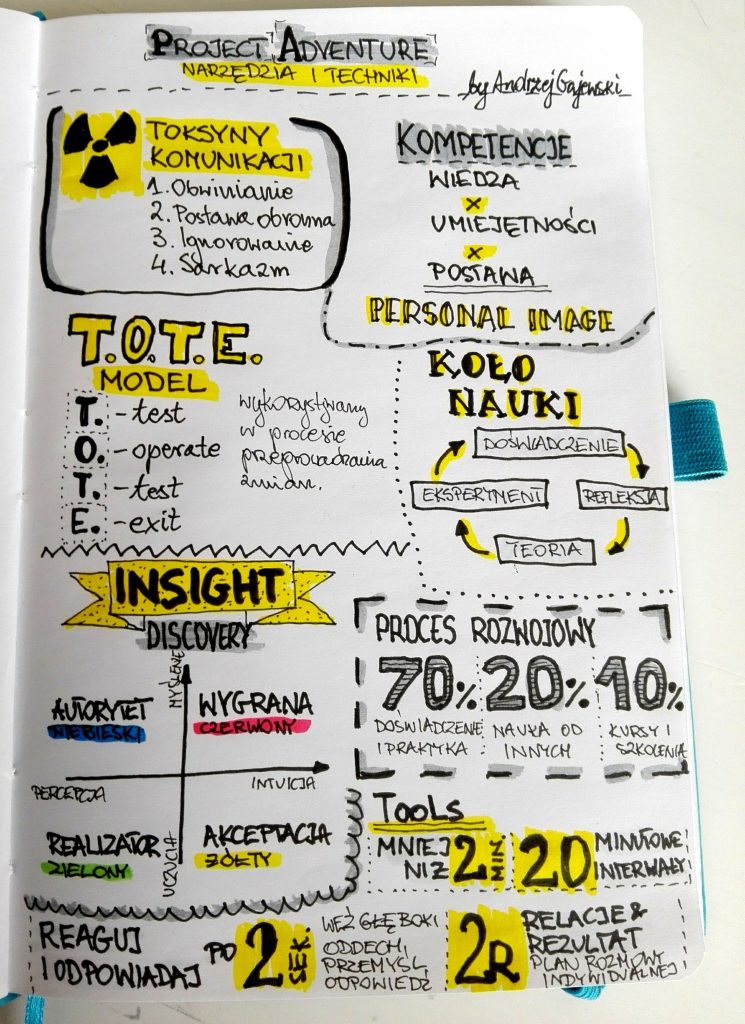 PROJECT ADVENTURE
NARZĘDZIA I TECHNIKI
by Andrzej Gajewski
TOKSYNY
KOMUNIKACJI
1. Obwinianie
2. Postawa obronna
3. Ignorowainie
4. Sarkazm
KOMPETENCJE
WIEDZA
x
UMIEJĘTNOŚCI
x
POSTAWA
PERSONAL IMAGE
T.O.T.E.
MODEL
T. - test
O. - operate
T. - test
E. - exit
wykorzystywany
w procesie
przeprowadzania
zmian.
KOŁO
NAUKI
DOŚWIADCZENIE
EKSPERYMENT
REFLEKSJA
TEORIA
INSIGHT
DISCOVERY
MYŚLENIE
AUTORYTET
NIEBIESKI
WYGRANA
CZERWONY
PERCEPCJA
INTUICJA
REALIZATOR
ZIELONY
AKCEPTACJA
ŻÓŁTY
UCZUCIA
PROCES ROZWOJOWY
70% 20% 10%
DOŚWIADCZENIE
I PRAKTYKA
NAUKA OD
INNYCH
KURSY I
SZKOLENIA
TOOLS
MNIEJ
NIŻ
2 MIN.
20 MINUTOWE
INTERWAŁY
REAGUJ
I ODPOWIADAJ
PO 2 SEK.
WEŹ GŁĘBOKI
ODDECH,
PRZEMYŚL,
ODPOWIEDZ
2R
RELACJE &
REZULTAT
PLAN ROZMOWY
INDYWIDUALNEJ